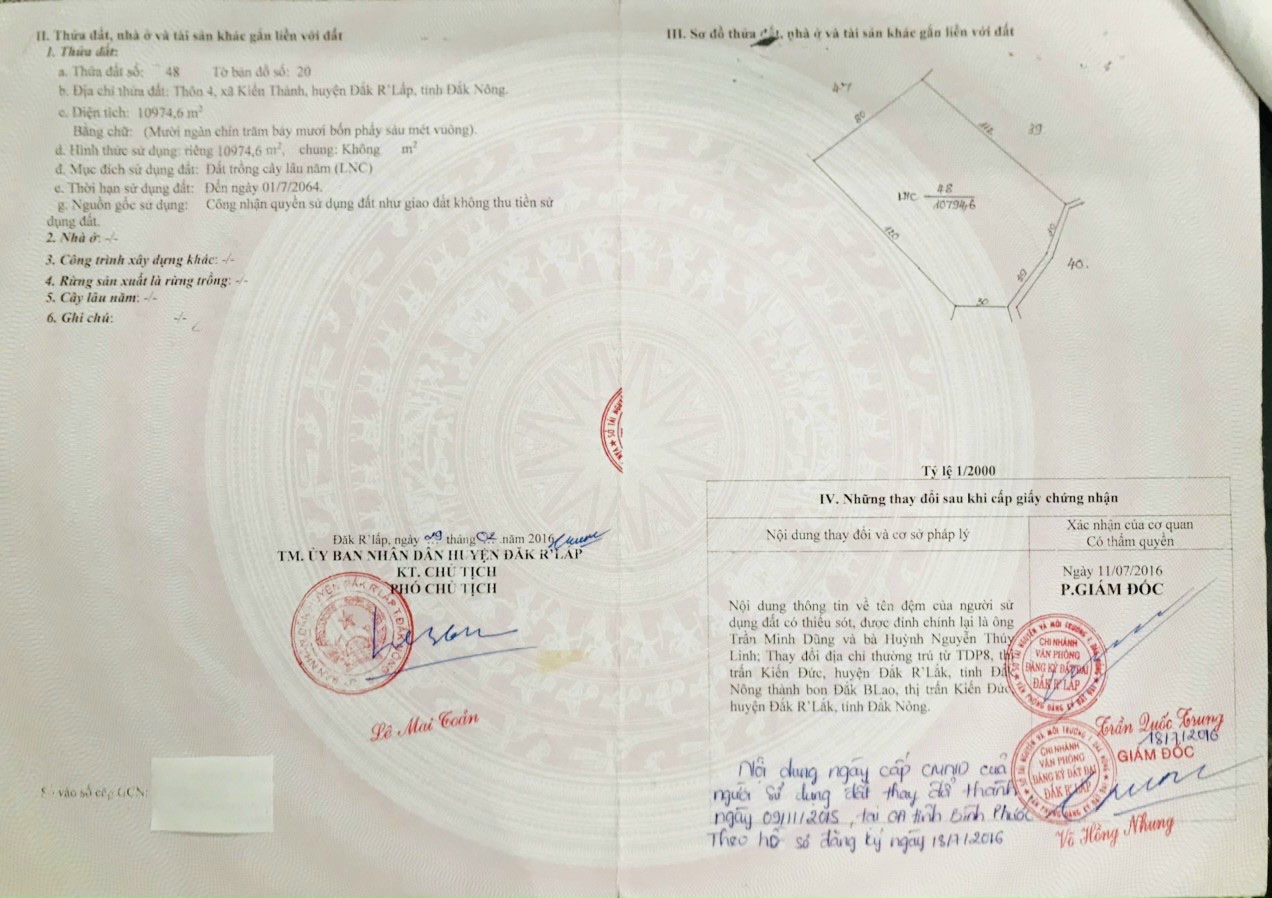 II. Thửa đất, nhà ở và tài sản khác gắn liền với đất
1. Thửa đất:
a. Thửa đất số: 48 Tờ bản đồ số: 20
b. Địa chỉ thửa đất: Thôn 4, xã Kiến Thành, huyện Đắk R'Lấp, tỉnh Đắk Nông.
c. Diện tích: 10974,6 m²
Bằng chữ: (Mười ngàn chín trăm bảy mươi bốn phẩy sáu mét vuông).
d. Hình thức sử dụng: riêng 10974,6 m², chung: Không m²
đ. Mục đích sử dụng đất: Đất trồng cây lâu năm (LNC)
e. Thời hạn sử dụng đất: Đến ngày 01/7/2064.
g. Nguồn gốc sử dụng: Công nhận quyền sử dụng đất như giao đất không thu tiền sử
dụng đất.
2. Nhà ở: -/-
3. Công trình xây dựng khác: -/-
4. Rừng sản xuất là rừng trồng: -/-
5. Cây lâu năm: -/-
6. Ghi chú: -/-
Đăk R'lấp, ngày 09 tháng 02 năm 2016
TM. ỦY BAN NHÂN DÂN HUYỆN ĐĂK R'LẤP
KT. CHỦ TỊCH
PHÓ CHỦ TỊCH
Lê Mai Toản
vào sổ cấp GCN:
III. Sơ đồ thửa đất, nhà ở và tài sản khác gắn liền với đất
80
112
39
LNC 48
10794,6
120
20
40.
40
30
Tỷ lệ 1/2000
IV. Những thay đổi sau khi cấp giấy chứng nhận
Nội dung thay đổi và cơ sở pháp lý
Xác nhận của cơ quan
Có thẩm quyền
Ngày 11/07/2016
P.GIÁM ĐỐC
Nội dung thông tin về tên đệm của người sử
dụng đất có thiếu sót, được đính chính lại là ông
Trần Minh Dũng và bà Huỳnh Nguyễn Thùy
Linh; Thay đổi địa chỉ thường trú từ TDP8, thị
trấn Kiến Đức, huyện Đắk R'Lắk, tỉnh Đắk
Nông thành bon Đắk BLao, thị trấn Kiến Đức,
huyện Đắk R'Lắk, tỉnh Đắk Nông.
CHI NHÁNH
VĂN PHÒNG
ĐĂNG KÝ ĐẤT ĐAI
ĐẮK R'LẤP
Trần Quốc Trung
18/7/2016
GIÁM ĐỐC
Nội dung ngày cấp CMND của
người sử dụng đất thay đổi thành
ngày 09/11/2015, tại CA tỉnh Bình Phước
Theo hồ sơ đăng ký ngày 18/7/2016
CHI NHÁNH
VĂN PHÒNG
ĐĂNG KÝ ĐẤT ĐAI
ĐẮK R'LẤP
Võ Hồng Nhung